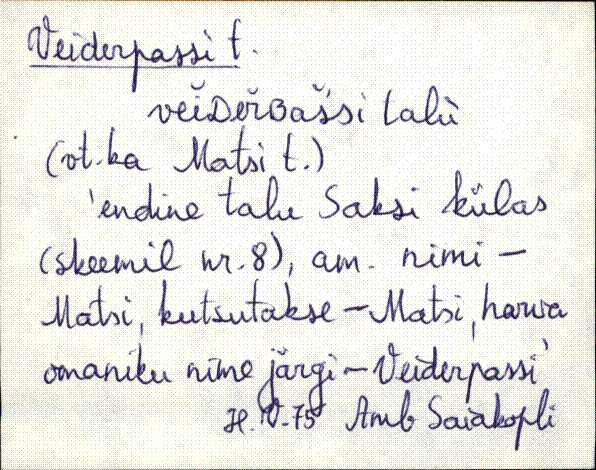 Veiderpassi t.
vĕĭDĕřʙăš̀si talù
(vt. ka Matsi t.)
'endine talu Saksi külas
(skeemil nr. 8), am. nimi –
Matsi, kutsutakse – Matsi, harva
omaniku nime järgi – Veiderpassi
IV-75 Amb Saiakopli